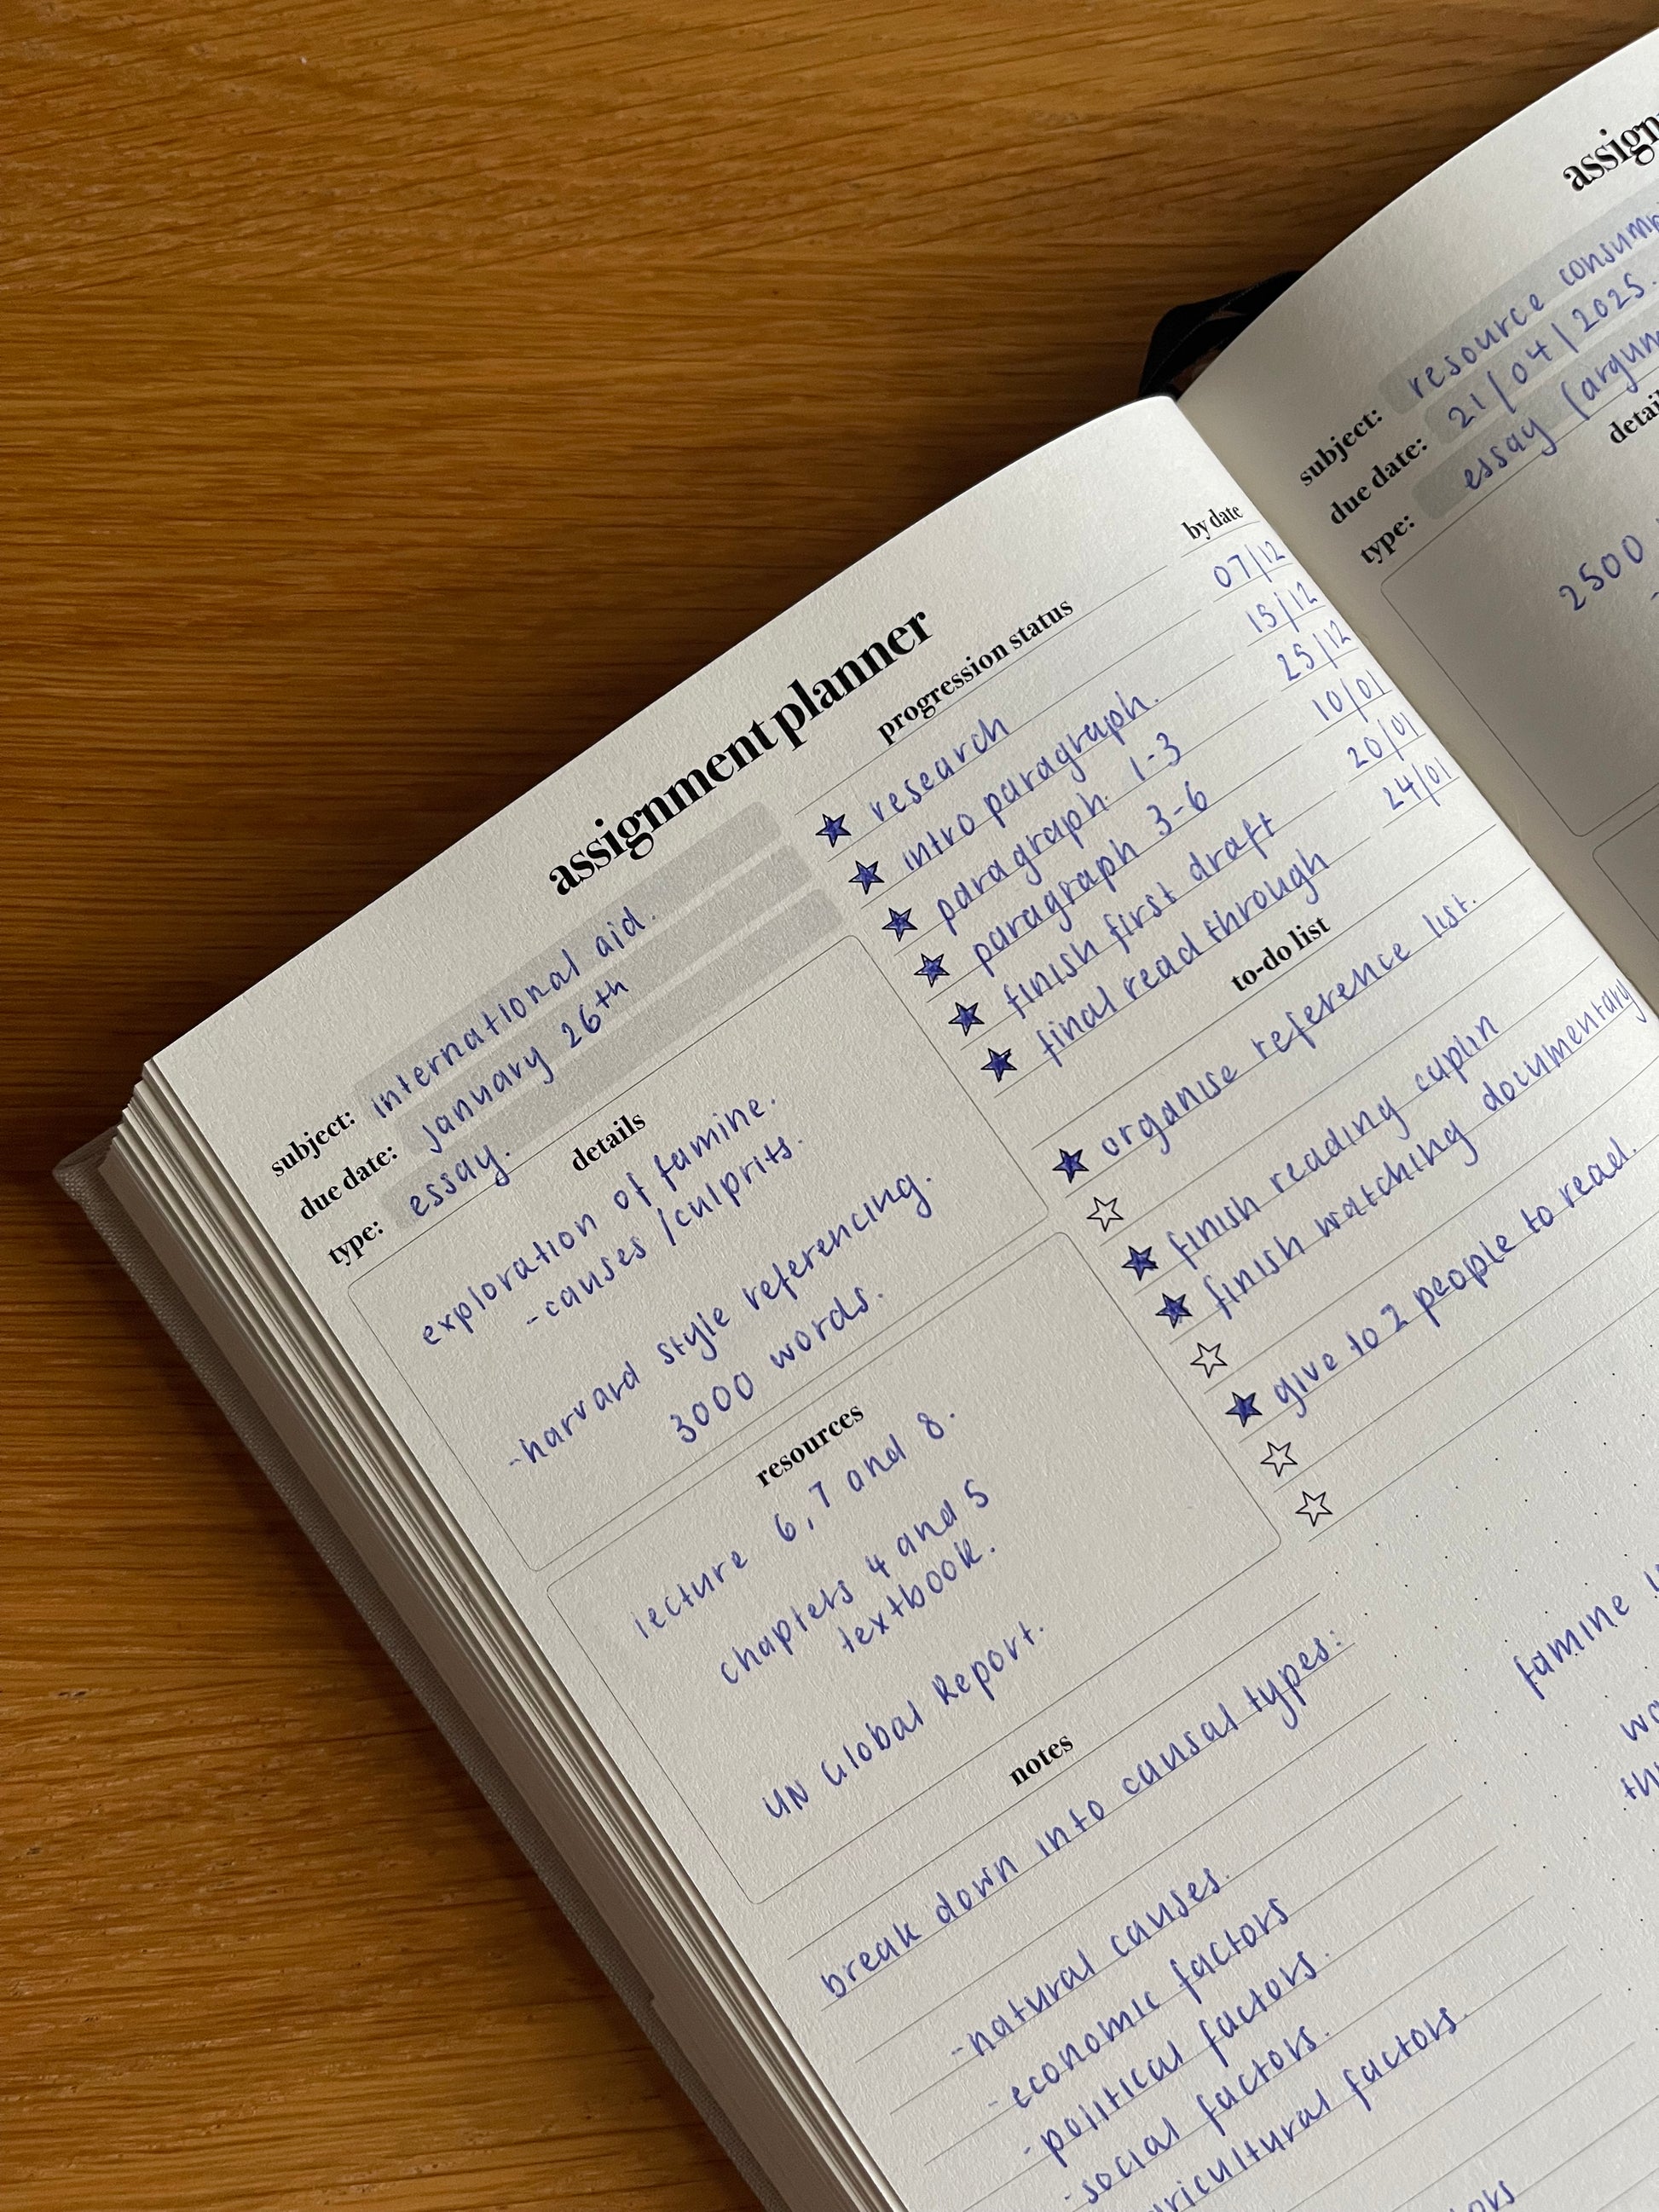 assignment planner
subject: international aid.
due date: january 26th
type: essay.
details
exploration of famine.
-causes/culprits.
-harvard style referencing.
3000 words.
resources
lecture 6, 7 and 8.
chapters 4 and 5
textbook.
UN Global Report.
notes
break down into causal types:
-natural causes.
-economic factors
-political factors.
-social factors.
factors.
progression status by date
research 07/12
intro paragraph. 15/12
paragraph 1-3 25/12
paragraph 3-6 10/01
finish first draft 20/01
final read through 24/01
to-do list
organise reference list.
finish reading
finish watching documentary
give to 2 people to read.
famine
subject: resource
due date: 21/04/2025.
type: essay
2500